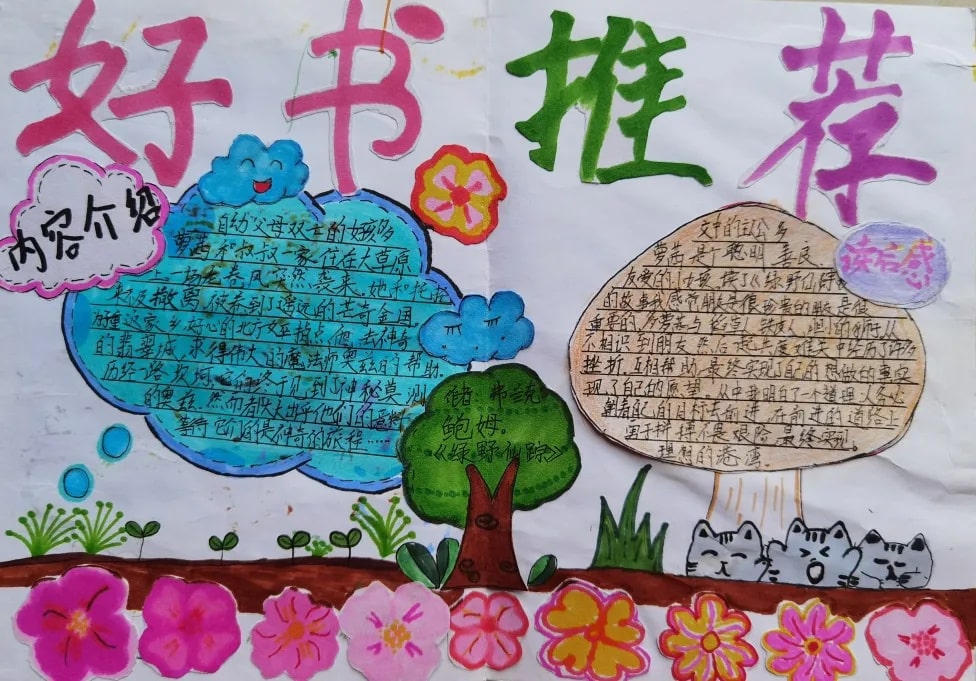 好书推荐
内容介绍
自幼父母双亡的女孩多
萝茜和叔叔一家住在大草原
一场龙卷风突然袭来,她和托托
来不及撤离,便来到了遥远的芒奇金国
为重返家乡好心的北方女巫指点她,去神奇
的翡翠城,求得伟大的魔法师奥兹的帮助.
历经一路坎坷,它们终于见到了神秘莫测
的奥兹,然而者大大出乎他们的意料
等待它们的是神奇的旅程……
作者:弗兰克
鲍姆.
《绿野仙踪》
读后感
文中的主人公多
萝茜是个聪明 善良
友爱的小女孩,读了《绿野仙踪》
的故事我感觉朋友是很珍贵的朋友是很
重要的,多萝茜与稻草人,铁皮人,胆小的狮子从
不相识到朋友,然后一起去度难关中经历了许多
挫折,互相帮助,最终实现了自己的想做的事实
现了自己的愿望,从中我明白了一个道理,人务必
朝着自己的目标去前进,在前进的道路上
勇于拼搏不畏艰险,最终实现
理想的港湾.